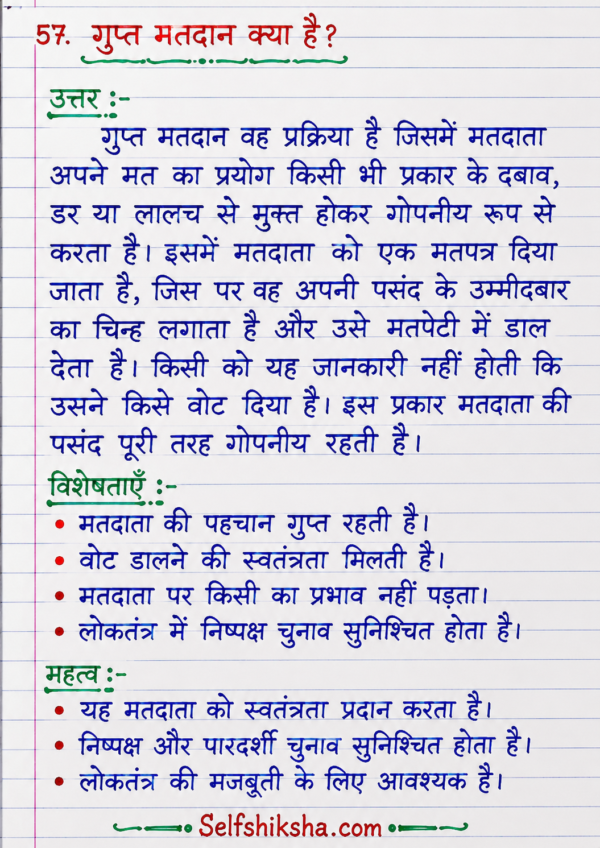 57. गुप्त मतदान क्या है?
उत्तर :-
गुप्त मतदान वह प्रक्रिया है जिसमें मतदाता
अपने मत का प्रयोग किसी भी प्रकार के दबाव,
डर या लालच से मुक्त होकर गोपनीय रूप से
करता है। इसमें मतदाता को एक मतपत्र दिया
जाता है, जिस पर वह अपनी पसंद के उम्मीदबार
का चिन्ह लगाता है और उसे मतपेटी में डाल
देता है। किसी को यह जानकारी नहीं होती कि
उसने किसे वोट दिया है। इस प्रकार मतदाता की
पसंद पूरी तरह गोपनीय रहती है।
विशेषताएँ :-
• मतदाता की पहचान गुप्त रहती है।
• वोट डालने की स्वतंत्रता मिलती है।
• मतदाता पर किसी का प्रभाव नहीं पड़ता।
• लोकतंत्र में निष्पक्ष चुनाव सुनिश्चित होता है।
महत्व :-
• यह मतदाता को स्वतंत्रता प्रदान करता है।
• निष्पक्ष और पारदर्शी चुनाव सुनिश्चित होता है।
• लोकतंत्र की मजबूती के लिए आवश्यक है।
Selfshiksha.com